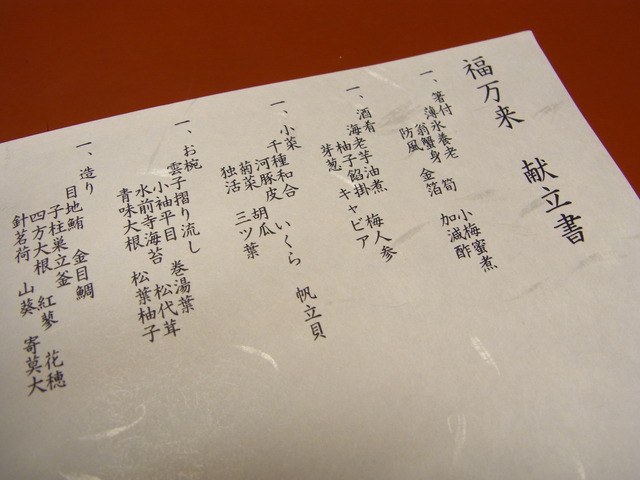 福万来 献立書
一、箸付
薄氷養老 筍 小梅蜜煮
翁蟹身 金箔 加減酢
防風
一、酒肴
海老芋油煮 梅人参
柚子餡掛 キャビア
芽葱
一、小菜
千種和合 いくら 帆立貝
河豚皮 胡瓜
菊菜 三ツ葉
独活
一、お椀
雲子摺り流し 巻湯葉
小袖平目 松代茸
水前寺海苔 松葉柚子
青味大根
一、造り
目地鮪 金目鯛
子柱巣立釜 紅蓼 花穂
四方大根 山葵 寄莫大
針茗荷